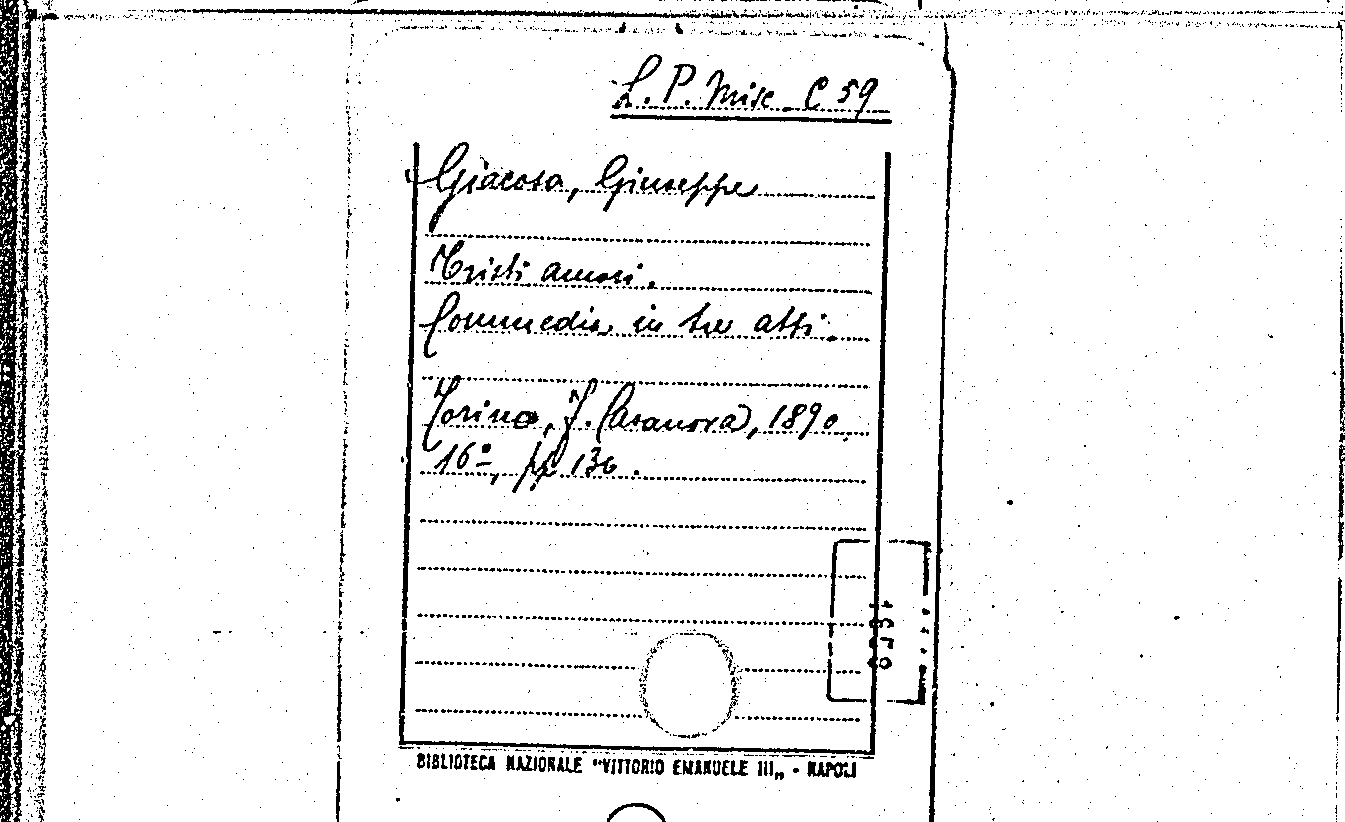 L. P. Misc. C 59
Giacosa, Giuseppe
Tristi amori.
Commedia in tre atti.
Torino, F. Casanova, 1890.
16º, pp 136.
BIBLIOTECA NAZIONALE "VITTORIO EMANUELE III„ - NAPOLI